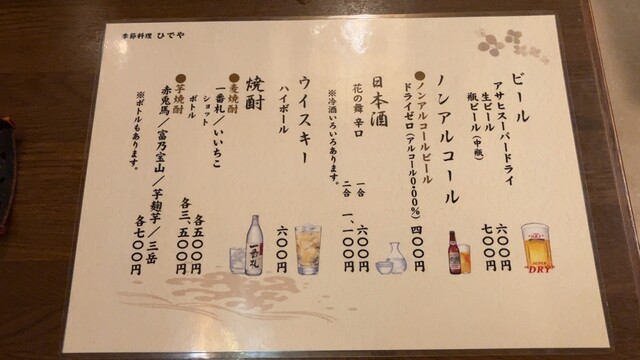 季節料理 ひでや
ビール
アサヒスーパードライ
生ビール 六〇〇円
瓶ビール(中瓶) 七〇〇円
ノンアルコール
●ノンアルコールビール
ドライゼロ(アルコール0.00%) 四〇〇円
日本酒
花の舞 辛口 一合 六〇〇円
二合 一、一〇〇円
※冷酒いろいろあります。
ウイスキー
ハイボール 六〇〇円
焼酎
●麦焼酎
一番札/いいちこ
ショット 各五〇〇円
ボトル 各三、五〇〇円
●芋焼酎
赤兎馬/富乃宝山/芋麹芋/三岳 各七〇〇円
※ボトルもあります。
一番札
SUPER
DRY